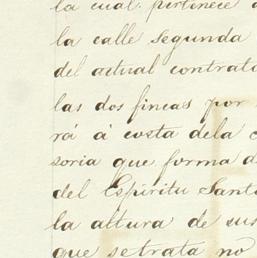 la cual pertenece
la calle segunda
del actual contrato
las dos fincas por
rá á costa dela
soria que forma
del Espíritu Santo
la altura de sus
que setrata no